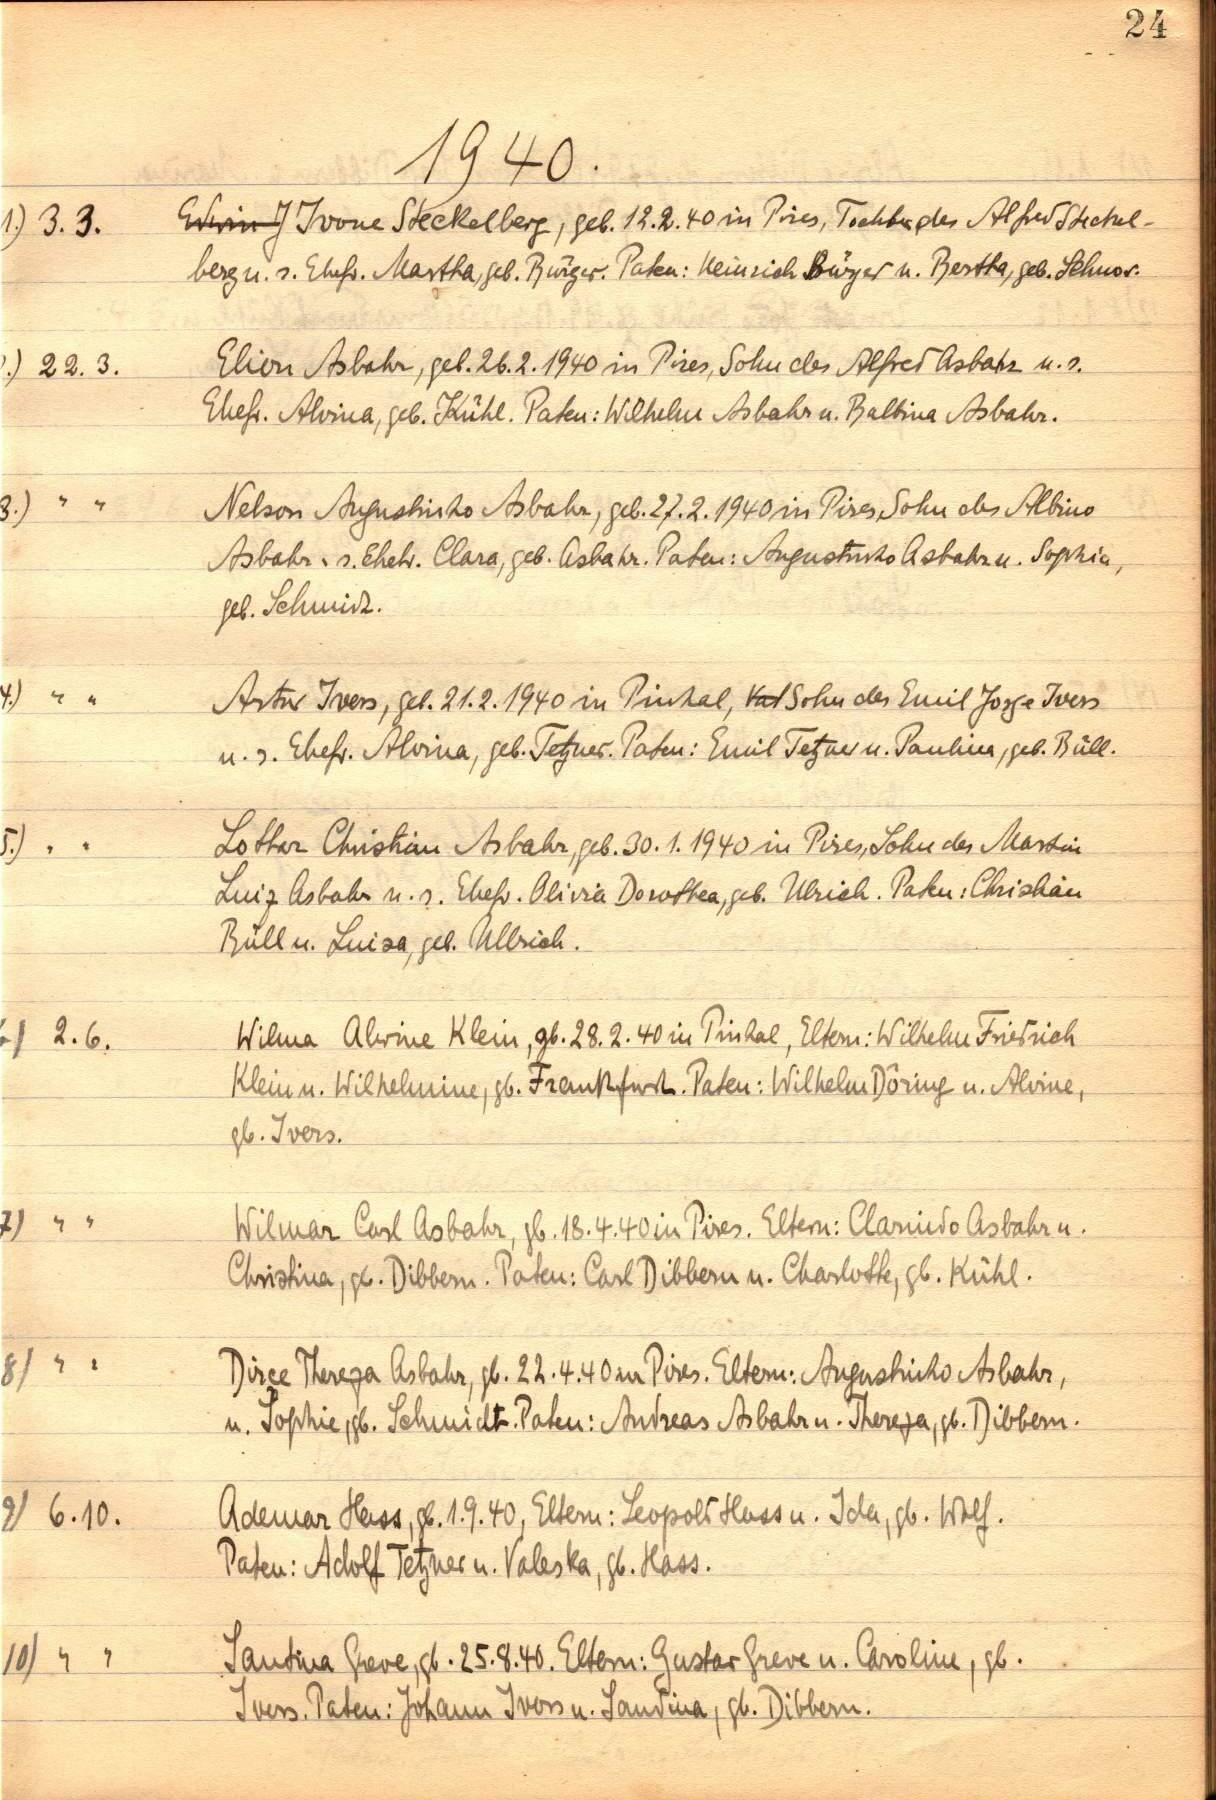 24
1940.
1.) 3. 3. Edwin J Ivone Steckelberg, geb. 12.2.40 in Pires, Tochter des Alfred Steckel-
berg u. s. Ehefr. Martha, geb. Bürger. Paten: Heinrich Bürger u. Bertha, geb. Schnor.
.) 22. 3. Elion Asbahr, geb. 26.2.1940 in Pires, Sohn des Alfred Asbahr u. s.
Ehefr. Alvina, geb. Kühl. Paten: Wilhelm Asbahr u. Balbina Asbahr.
3.) " " Nelson Augustinho Asbahr, geb. 27.2.1940 in Pires, Sohn des Albino
Asbahr . s. Ehefr. Clara, geb. Asbahr. Paten: Augustinho Asbahr u. Sophia,
geb. Schmidt.
4.) " " Artur Ivers, geb. 21.2.1940 in Pinhal, Sohn des Emil Jorge Ivers
u. s. Ehefr. Alvina, geb. Tetzner. Paten: Emil Tetzner u. Paulina, geb. Büll.
5.) " " Lothar Christian Asbahr, geb. 30.1.1940 in Pires, Sohn des Martin
Luiz Asbahr u. s. Ehefr. Olivia Dorothea, geb. Ulrich. Paten: Christian
Büll u. Luisa, geb. Ullrich.
6) 2. 6. Wilma Alwine Klein, gb. 28.2.40 in Pinhal, Eltern: Wilhelm Friedrich
Klein u. Wilhelmine, gb. Frankfurt. Paten: Wilhelm Döring u. Alvine,
gb. Ivers.
7) " " Wilmar Carl Asbahr, gb. 18.4.40 in Pires. Eltern: Clarindo Asbahr u.
Christina, gb. Dibbern. Paten: Carl Dibbern u. Charlotte, gb. Kühl.
8) " " Dirce Thereza Asbahr, gb. 22.4.40 in Pires. Eltern: Augustinho Asbahr,
u. Sophie, gb. Schmidt. Paten: Andreas Asbahr u. Thereza, gb. Dibbern.
9) 6. 10. Ademar Hass, gb. 1.9.40, Eltern: Leopold Hass u. Ida, gb. Wolf.
Paten: Adolf Tetzner u. Valeska, gb. Hass.
10) " " Santina Greve, gb. 25.8.40. Eltern: Gustav Greve u. Caroline, gb.
Ivers. Paten: Johann Ivers u. Sandina, gb. Dibbern.